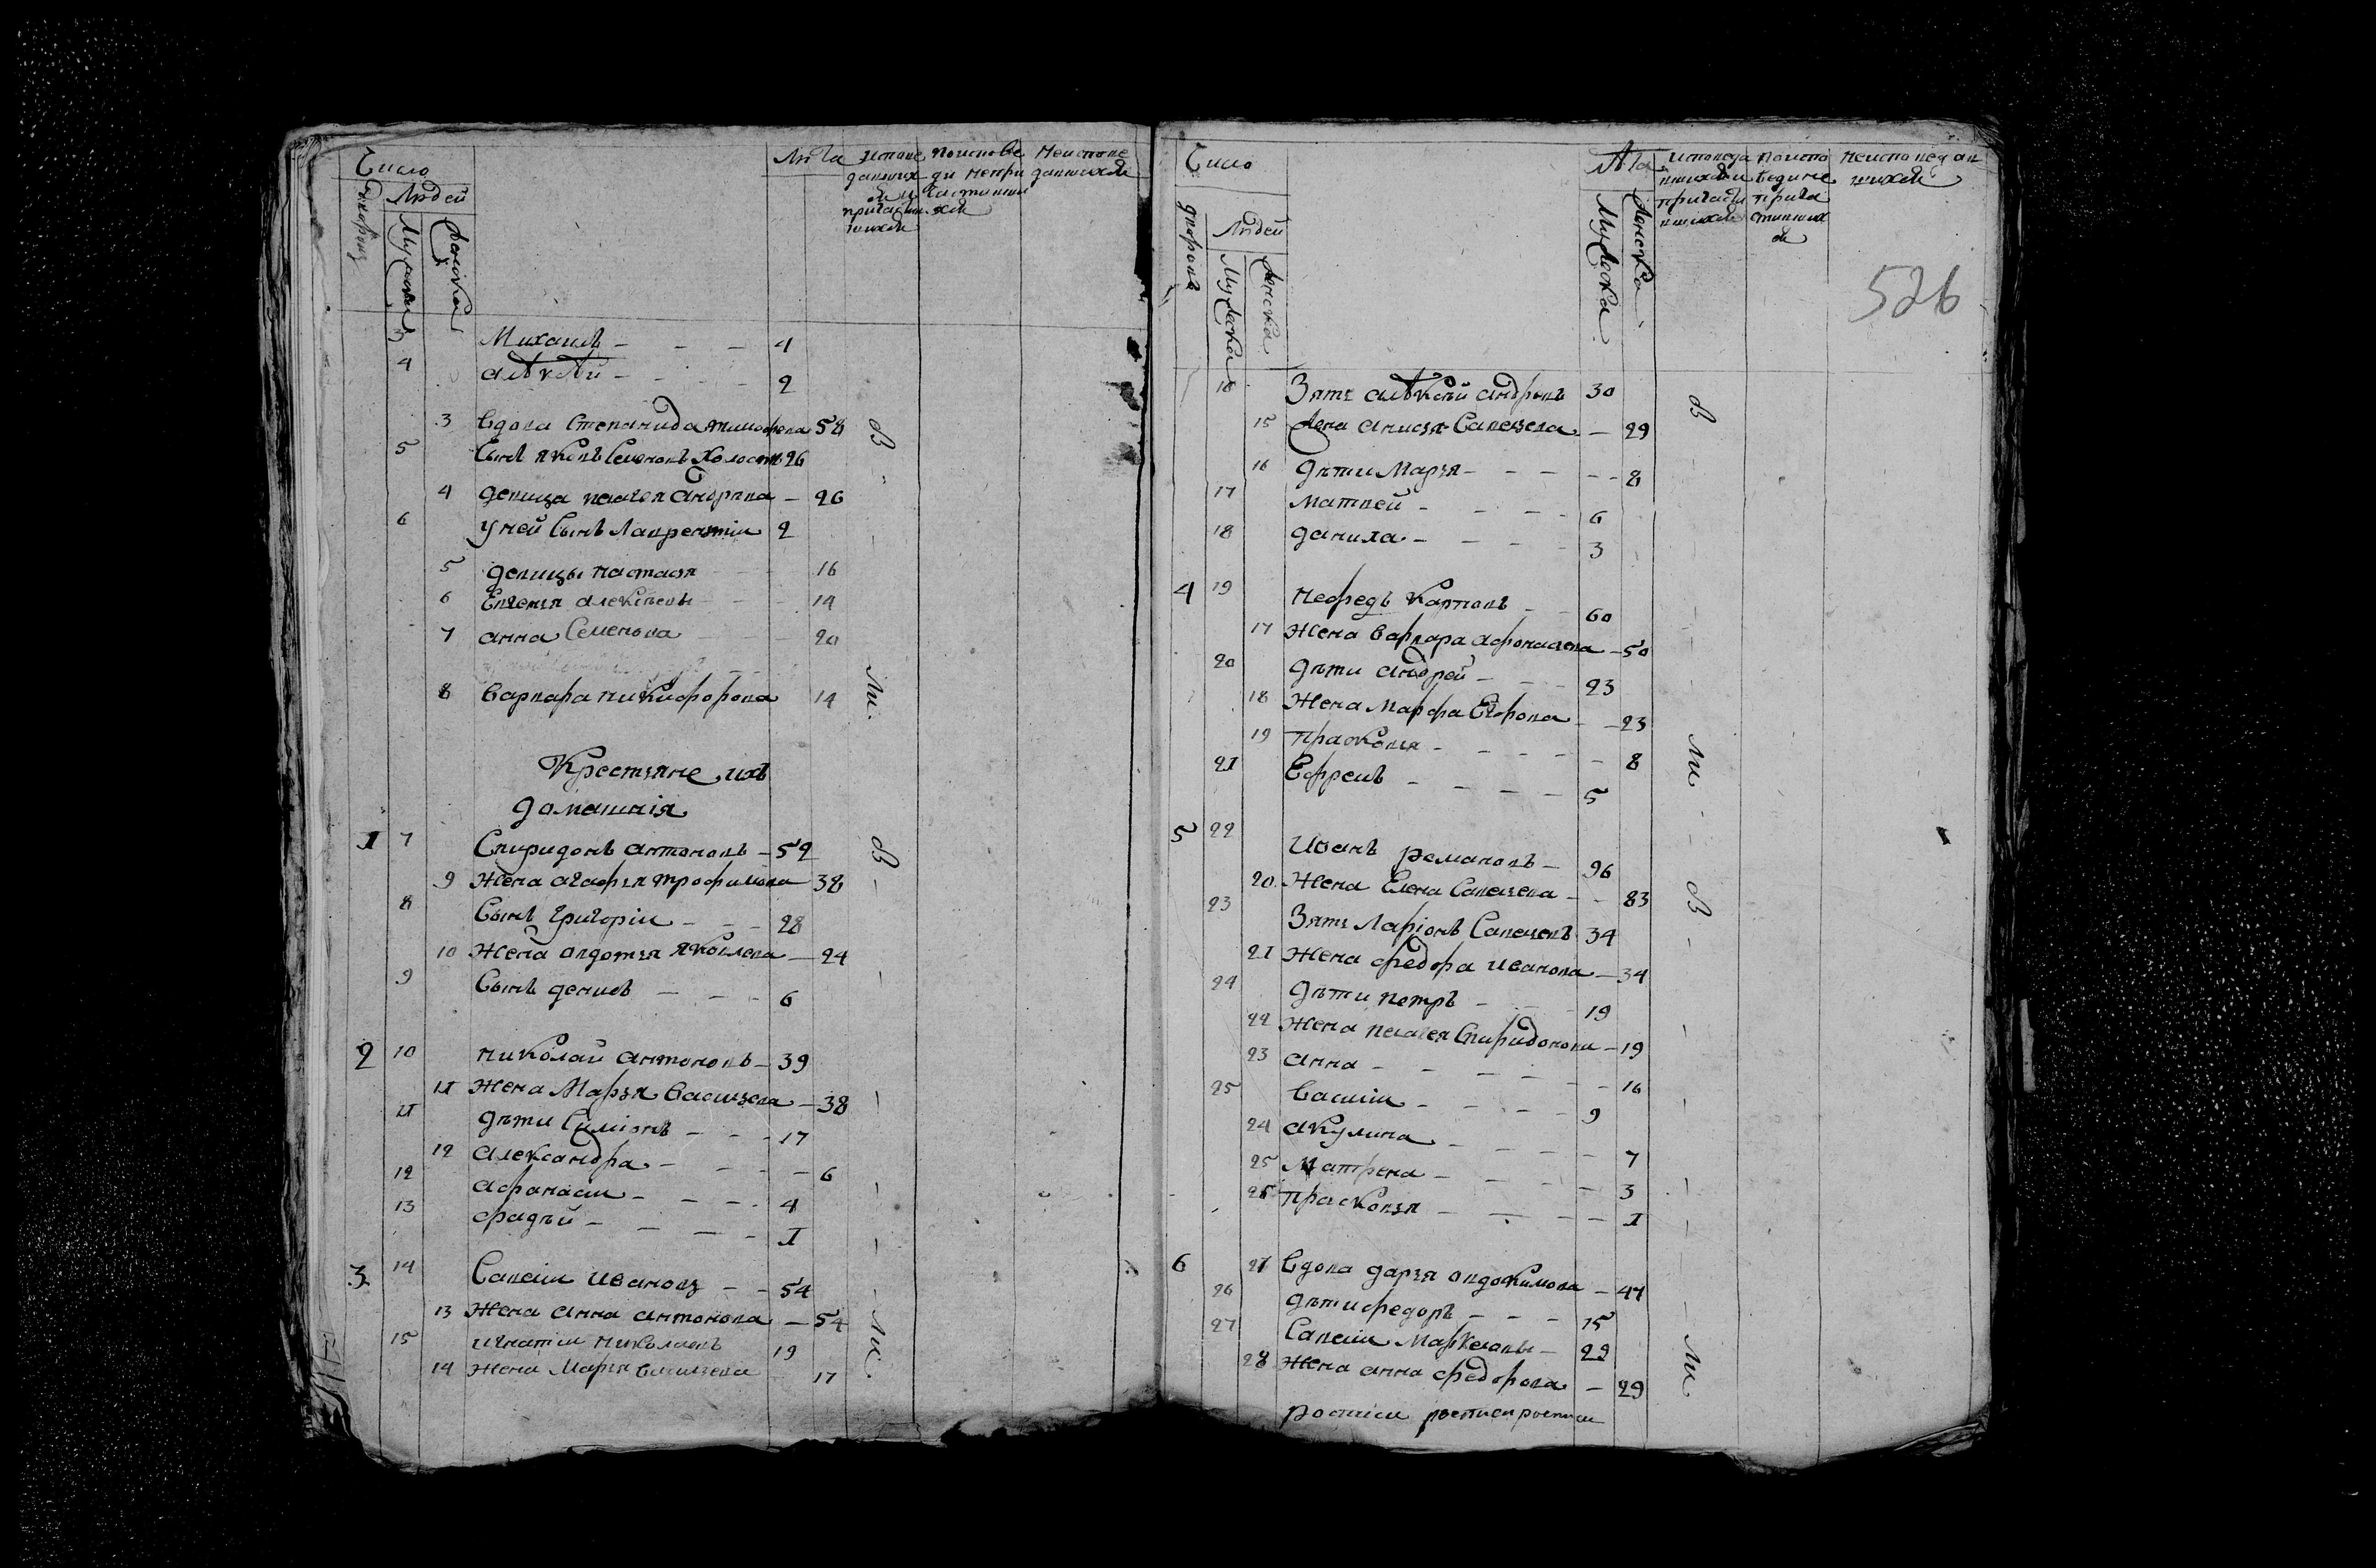 Число
Людей
дворовъ
Мужеска
Женска
Лѣта
исповедавшихся и причастившихся
по исповеди не причастившихся
не исповедавшихся
3 Михаилъ - - - 4
4 алѣкѣй - - - 2
3 вдова степанида тимофеева 58
5 сынъ яковъ семеновъ холостъ 26
4 девица пелагея андреева - 26
6 у ней сынъ лаврентiи 2
5 девицы настасья 16
6 Евгенья алексѣевы 14
7 анна семенова 20
8 варвара никифорова 14
Крестьяне ихъ
домашнiя
1 7 Спиридонъ антоновъ - 52
9 жена агафья трофимова 38
8 сынъ григорiи - - - 28
10 жена авдотья яковлева - 24
9 сынъ денисъ - - - 6
2 10 николай антоновъ - 39
11 жена Марья васильева - 38
11 дѣти Симiонъ - - - 17
12 александра - - - - 6
12 афанасiи - - - 4
13 фадѣй - - - - 1
3 14 Савелiи ивановъ - - 54
13 жена анна антонова - 54
15 игнатiи николаевъ 19
14 жена Марья васильева 17
Число
Людей
дворовъ
Мужеска
Женска
Лѣта
Мужеска
Женска
исповедавшихся и причастившихся
по исповеди не причастившихся
не исповедавшихся
526
16 Зять алѣксѣй андреевъ 30
15 жена анисья савельева - 29
16 дѣти Марья - - - - - 8
17 матвей - - - - 6
18 данила - - - - 3
4 19 нефедъ карповъ - - 60
17 жена варвара афонасьева - 50
20 дѣти андрей - - - 23
18 жена марфа Егорова - - 23
19 прасковья - - - - - 8
21 Ефремъ - - - - 5
5 22 Иванъ романовъ - 96
20 жена Елена савельева - - 83
23 Зять Ларiонъ савельевъ 34
21 жена федора иванова - 34
24 дѣти петръ - - 19
22 жена пелагея спиридонова - 19
23 анна - - - - - - 16
25 василiи - - - - 9
24 акулина - - - - - 7
25 Матрена - - - - 3
26 прасковья - - - - 1
6 27 вдова дарья авдокимова - 47
26 дѣти федоръ - - - 15
27 Савелiи Маркеловы - 29
28 жена анна федорова - 29